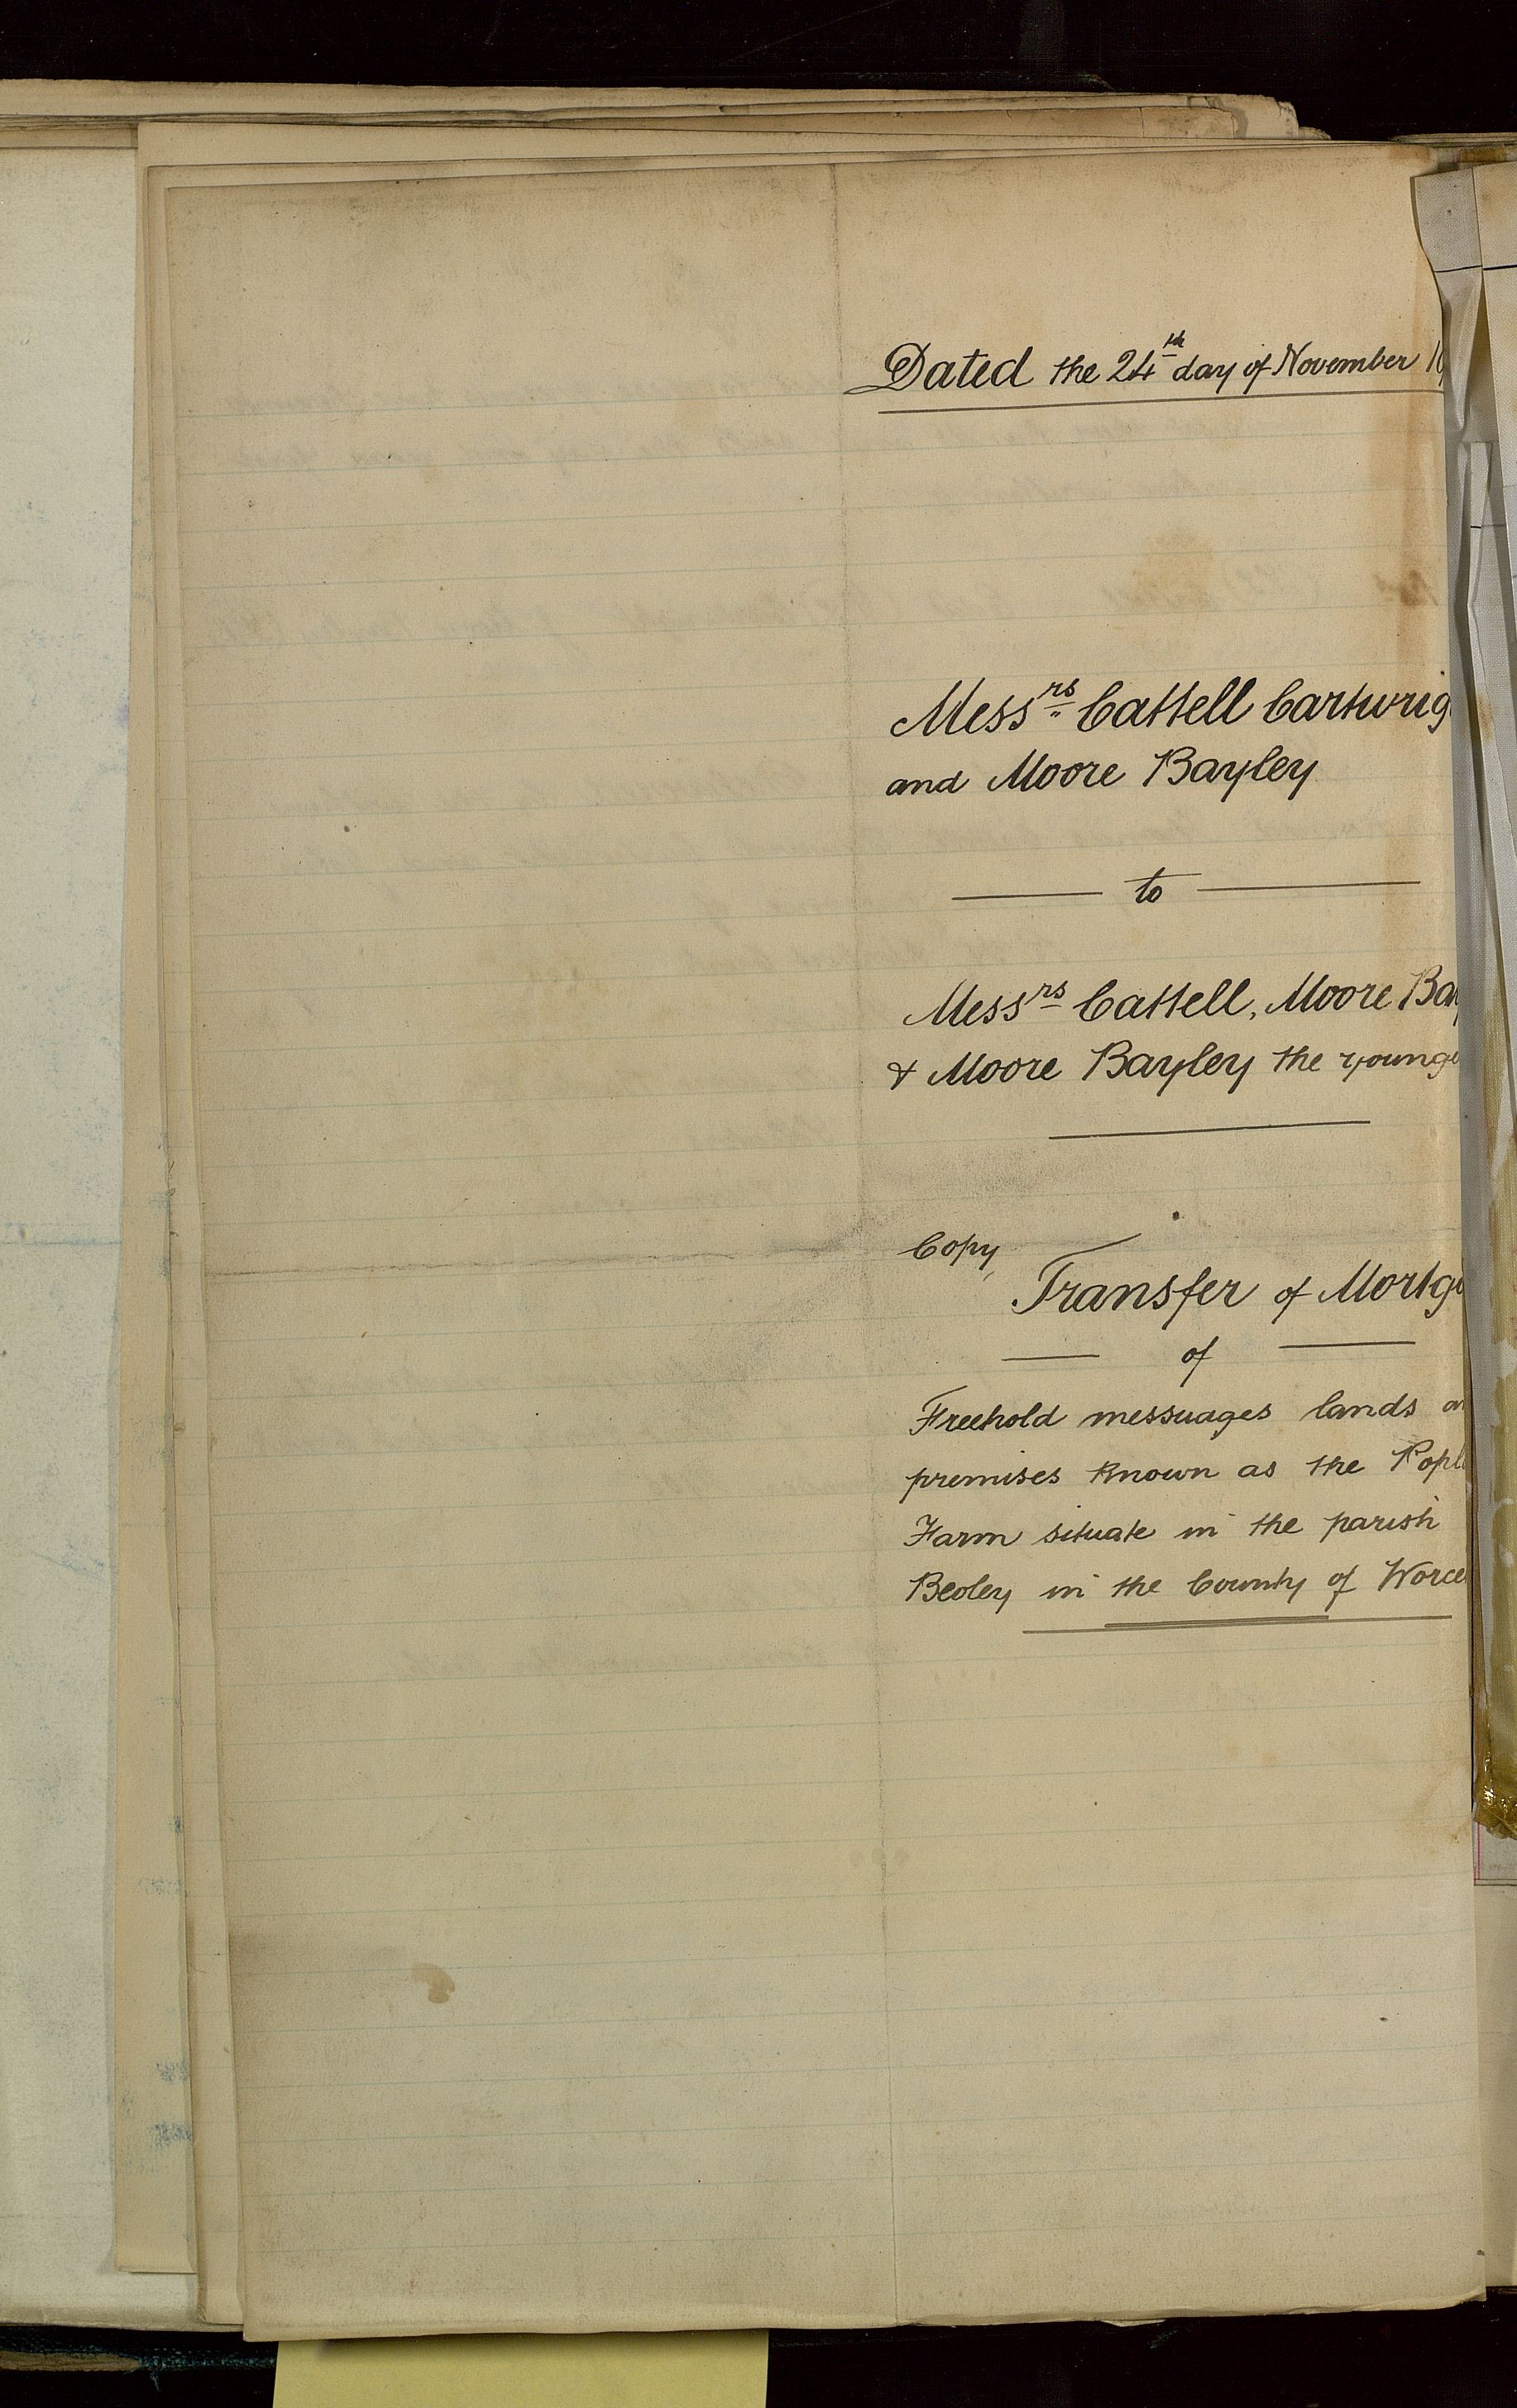 Dated the 24th day of November
Messrs Cattell Cartwrig
and Moore Bayley
to
Messrs Cattell, Moore Bay
& Moore Bayley the younge
Copy
Transfer of Mortga
of
Freehold messuages lands an
premises known as the Popl
Farm situate in the parish
Beoley in the County of Worce